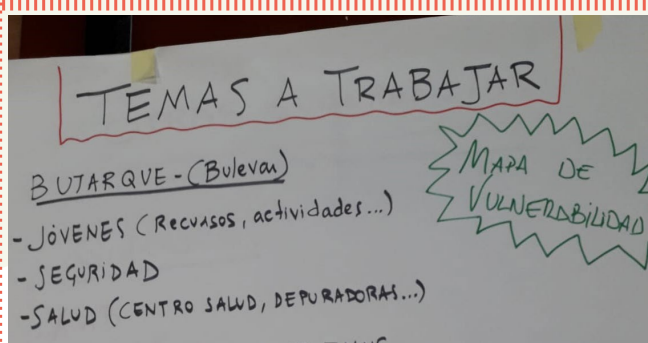 TEMAS A TRABAJAR
BUTARQUE - (Bulevar)
MAPA DE
VULNERABILIDAD
- JÓVENES (Recursos, actividades...)
- SEGURIDAD
- SALUD (CENTRO SALUD, DEPURADORAS...)